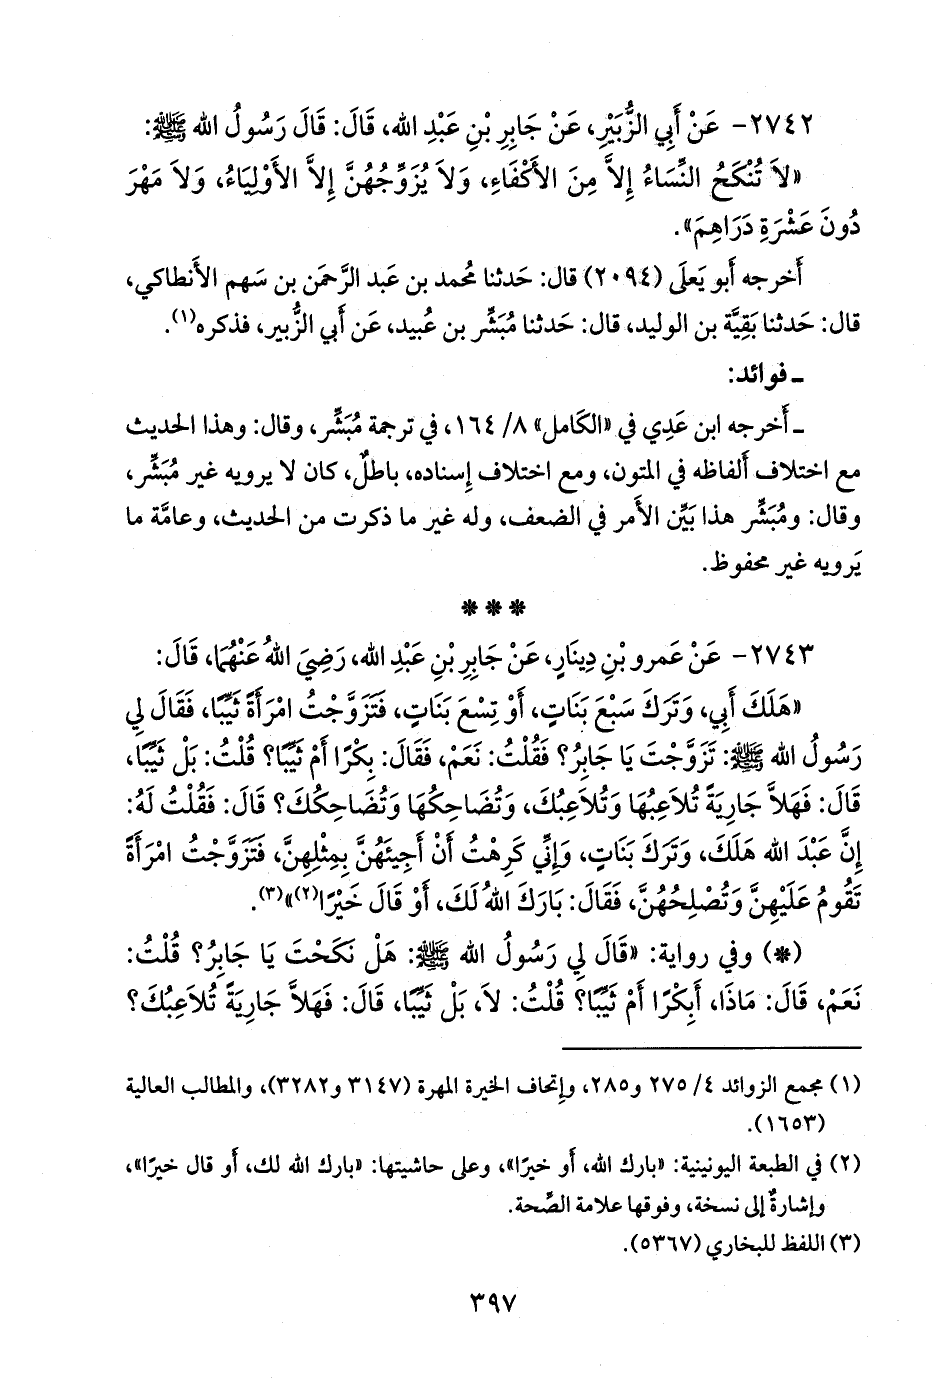 ٢٧٤٢- عَنْ أَبِي الزُّبَيْرِ، عَنْ جَابِرِ بْنِ عَبْدِ الله، قَالَ: قَالَ رَسُولُ الله ﷺ:
«لاَ تُنْكَحُ النِّسَاءُ إِلاَّ مِنَ الأَكْفَاءِ، وَلاَ يُزَوِّجُهُنَّ إِلاَّ الأَوْلِيَاءُ، وَلاَ مَهْرَ
دُونَ عَشْرَةِ دَرَاهِمَ».
أَخرجه أَبو يَعلَى (٢٠٩٤) قال: حَدثنا مُحمد بن عَبد الرَّحمَن بن سَهم الأَنطاكي،
قال: حَدثنا بَقِيَّة بن الوليد، قال: حَدثنا مُبَشِّر بن عُبيد، عَن أَبي الزُّبير، فذكره(١).
ـ فوائد:
ـ أَخرجه ابن عَدِي في «الكَامل» ٨/ ١٦٤، في ترجمة مُبَشِّر، وقال: وهذا الحديث
مع اختلاف أَلفاظه في المتون، ومع اختلاف إِسناده، باطلٌ، كان لا يرويه غير مُبَشِّر،
وقال: ومُبَشِّر هذا بَيِّن الأَمر في الضعف، وله غير ما ذكرت من الحديث، وعامَّة ما
يَرويه غير محفوظ.
* * *
٢٧٤٣- عَنْ عَمرو بْنِ دِينَارٍ، عَنْ جَابِرِ بْنِ عَبْدِ الله، رَضِيَ اللهُ عَنْهُمَا، قَالَ:
«هَلَكَ أَبِي، وَتَرَكَ سَبْعَ بَنَاتٍ، أَوْ تِسْعَ بَنَاتٍ، فَتَزَوَّجْتُ امْرَأَةً ثَيِّبًا، فَقَالَ لِي
رَسُولُ الله ﷺ: تَزَوَّجْتَ يَا جَابِرُ؟ فَقُلْتُ: نَعَمْ، فَقَالَ: بِكْرًا أَمْ ثَيِّبًا؟ قُلْتُ: بَلْ ثَيِّبًا،
قَالَ: فَهَلاَّ جَارِيَةً تُلاَعِبُهَا وَتُلاَعِبُكَ، وَتُضَاحِكُهَا وَتُضَاحِكُكَ؟ قَالَ: فَقُلْتُ لَهُ:
إِنَّ عَبْدَ الله هَلَكَ، وَتَرَكَ بَنَاتٍ، وَإِنِّي كَرِهْتُ أَنْ أَجِيئَهُنَّ بِمِثْلِهِنَّ، فَتَزَوَّجْتُ امْرَأَةً
تَقُومُ عَلَيْهِنَّ وَتُصْلِحُهُنَّ، فَقَالَ: بَارَكَ اللهُ لَكَ، أَوْ قَالَ خَيْرًا(٢)»(٣).
(*) وفي رواية: «قَالَ لِي رَسُولُ الله ﷺ: هَلْ نَكَحْتَ يَا جَابِرُ؟ قُلْتُ:
نَعَمْ، قَالَ: مَاذَا، أَبِكْرًا أَمْ ثَيِّبًا؟ قُلْتُ: لاَ، بَلْ ثَيِّبًا، قَالَ: فَهَلاَّ جَارِيَةً تُلاَعِبُكَ؟
(١) مجمع الزوائد ٤/ ٢٧٥ و٢٨٥، وإتحاف الخيرة المهرة (٣١٤٧ و٣٢٨٢)، والمطالب العالية
(١٦٥٣).
(٢) في الطبعة اليونينية: «بارك الله، أو خيرًا»، وعلى حاشيتها: «بارك الله لك، أو قال خيرًا»،
وإشارةٌ إلى نسخة، وفوقها علامة الصِّحة.
(٣) اللفظ للبخاري (٥٣٦٧).
٣٩٧